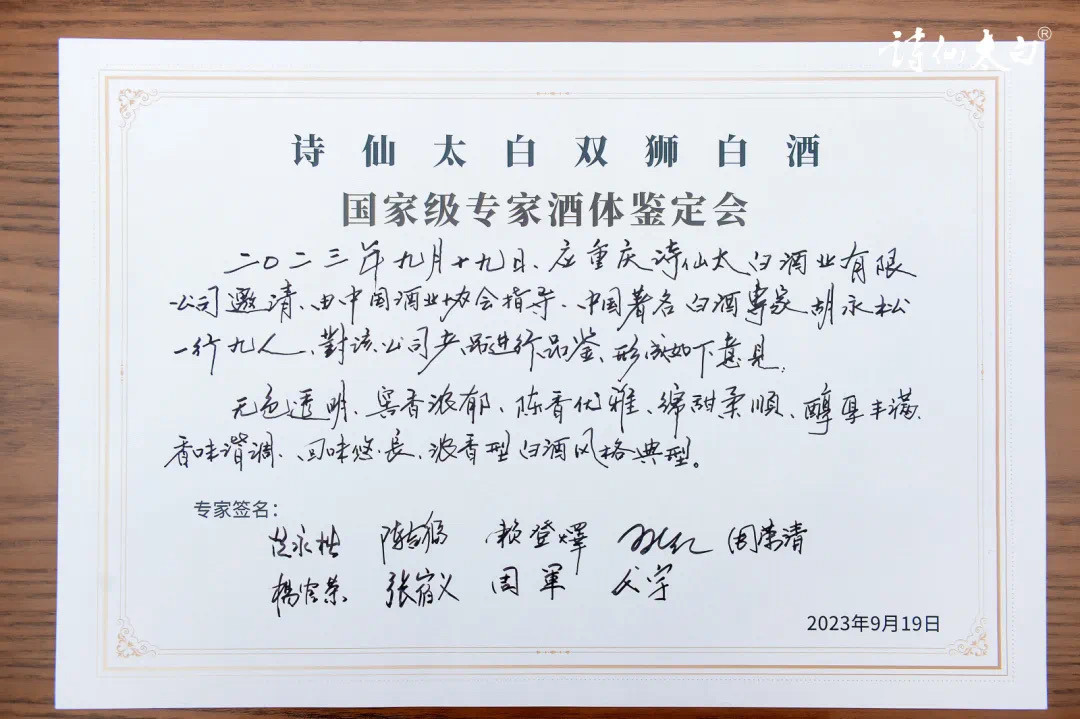 诗仙太白®
诗仙太白双狮白酒
国家级专家酒体鉴定会
二〇二三年九月十九日、应重庆诗仙太白酒业有限
公司邀请、由中国酒业协会指导、中国著名白酒專家胡永松
一行九人、對该公司产品进行品鉴、形成如下意見:
无色透明、窖香浓郁、陈香优雅、绵甜柔順、醇厚丰满、
香味谐调、回味悠長、浓香型白酒风格典型。
专家签名:
赖登燡 周荣清
张宿义 周軍
2023年9月19日